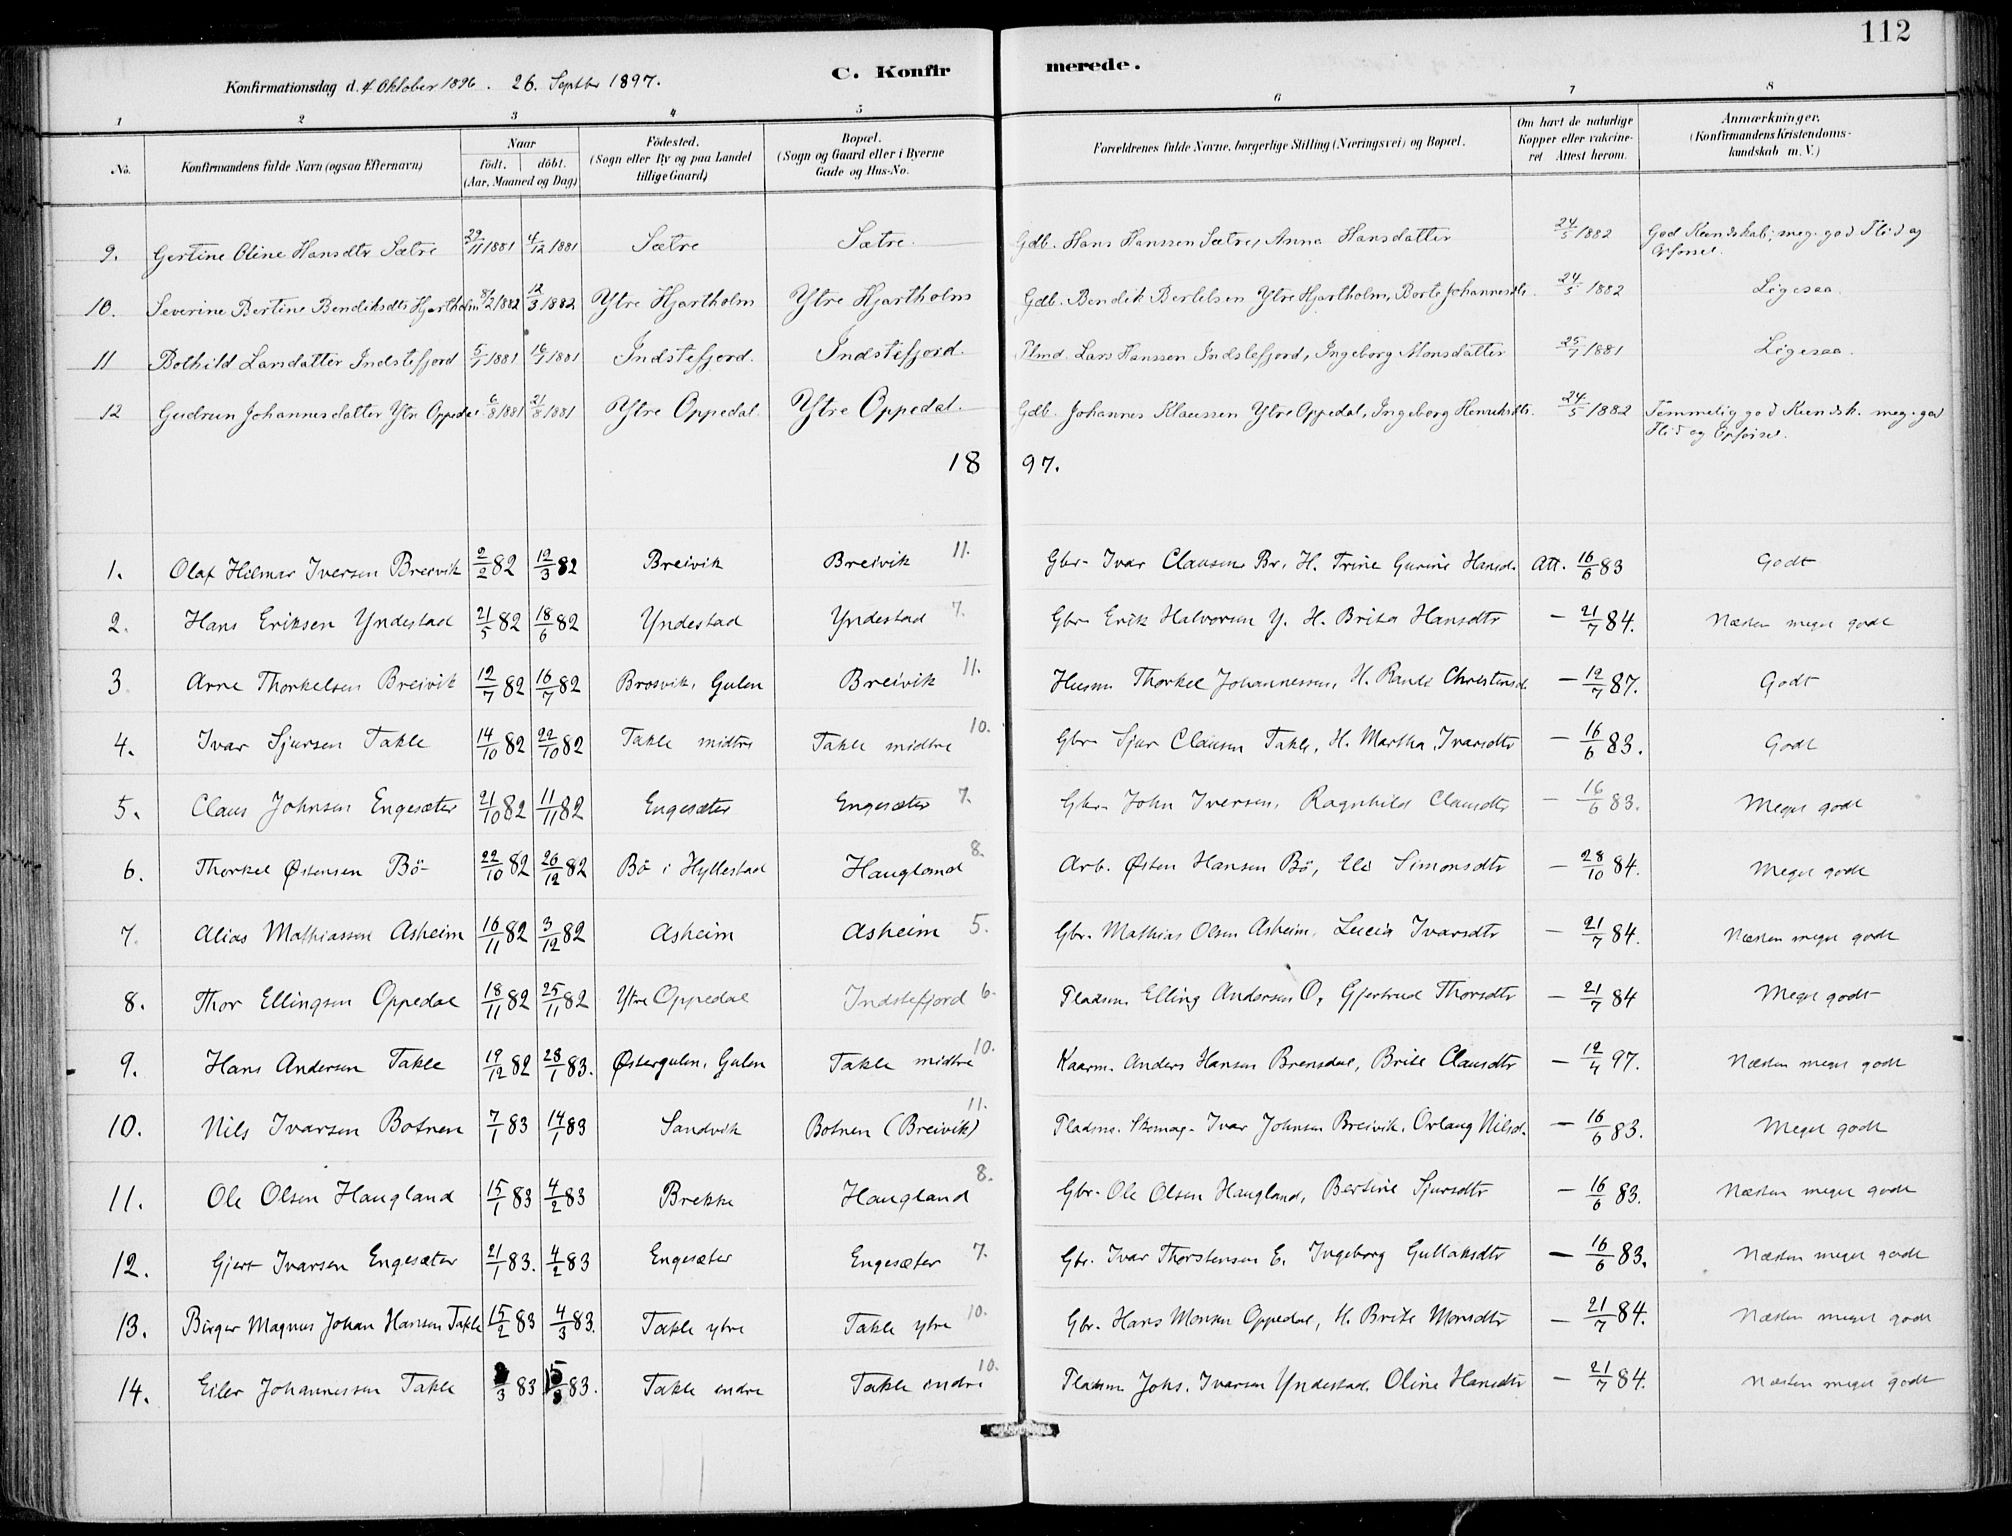 112
Konfirmationsdag d. 4 Oktober 1896. 26. Septbr 1897.
C. Konfirmerede.
1 2 3 4 5 6 7 8
No.
Konfirmandens fulde Navn (ogsaa Efternavn)
Naar
født. døbt.
(Aar, Maaned og Dag)
Fødested.
(Sogn eller By og paa Landet
tillige Gaard)
Bopæl.
(Sogn og Gaard eller i Byerne
Gade og Hus-No.
Forældrenes fulde Navne, borgerlige Stilling (Næringsvei) og Bopæl.
Om havt de naturlige
Kopper eller vakcine-
ret Attest herom.
Anmærkninger.
(Konfirmandens Kristendoms-
kundskab m. V.)
9. Gertine Oline Hansdtr Sætre 29/11 1881 4/12 1881 Sætre Sætre. Gdb. Hans Hanssen Sætre, Anna Hansdatter 24/5 1882 God Kundskab; meg. god Flid og
Opførsel.
10. Severine Bertine Bendiksdtr Hjartholm 8/2 1882 12/3 1882 Ytre Hjartholm Ytre Hjartholm Gdb. Bendik Bertelsen Ytre Hjartholm, Borte Johannesdtr. 24/5 1882 Ligesaa.
11 Bothild Larsdatter Indstefjord 5/7 1881 16/7 1881 Indstefjord. Indstefjord. Plmd. Lars Hanssen Indstefjord, Ingeborg Monsdatter 25/7 1881 Ligesaa.
12 Gudrun Johannesdatter Ytre Oppedal 6/8 1881 21/8 1881 Ytre Oppedal. Ytre Oppedal. Gdb. Johannes Klaussen Ytre Oppedal, Ingeborg Henriksdtr. 24/5 1882 Temmelig god Kundsk. meg. god
Flid og Opførsel.
1897.
1. Olaf Hilmar Iversen Breivik 2/2 82 12/3 82 Breivik Breivik 11. Gbr. Ivar Clausen Br, H. Trine Gurine Hansd. Att. 16/6 83 Godt
2. Hans Eriksen Yndestad 21/5 82 18/6 82 Yndestad Yndestad 7. Gbr Erik Halvorsen Y. H. Brita Hansdtr — 21/7 84. Næsten meget godt
3. Arne Thorkelsen Breivik 12/7 82 16/7 82 Brosvik, Gulen Breivik 11. Husm. Thorkel Johannessen, H. Randi Christensd. — 12/7 87. Godt
4. Ivar Sjursen Takle 14/10 82 22/10 82 Takle midtre Takle midtre 10. Gbr Sjur Clausen Takle, H. Martha Ivarsdtr — 16/6 83. Godt
5. Claus Johnsen Engesæter 21/10 82 11/11 82 Engesæter Engesæter 7. Gbr. John Iversen, Ragnhild Clausdtr — 16/6 83. Meget godt
6. Thorkel Østensen Bö 22/10 82 26/12 82 Bö i Hyllestad Haugland 8. Arb. Østen Hansen Bö, Eli Simonsdtr — 28/10 84. Meget godt
7. Alias Mathiassen Asheim 16/11 82 3/12 82 Asheim Asheim 5. Gbr. Mathias Olsen Asheim, Lucia Ivarsdtr — 21/7 84. Næsten meget godt
8. Thor Ellingsen Oppedal 18/11 82 25/11 82 Ytre Oppedal Indstefjord 6. Pladsm. Elling Andersen O, Gjertrud Thorsdtr — 21/7 84 Meget godt
9. Hans Andersen Takle 19/12 82 28/1 83. Østergulen, Gulen Takle midtre 10. Kaarm. Anders Hansen Brensdal, Brite Clausdtr — 12/4 97. Næsten meget godt
10. Nils Ivarsen Botnen 7/1 83 14/1 83 Sandvik Botnen (Breivik) 11. Pladsm. Skomag. Ivar Johnsen Breivik, Orlaug Nilsd. — 16/6 83. Meget godt
11. Ole Olsen Haugland 15/1 83 4/2 83 Brekke Haugland 8. Gbr. Ole Olsen Haugland, Bertine Sjursdtr — 16/6 83. Næsten meget godt
12. Gjert Ivarsen Engesæter 21/1 83. 4/2 83 Engesæter Engesæter 7. Gbr. Ivar Thorstensen E. Ingeborg Gullaksdtr — 16/6 83. Næsten meget godt
13. Birger Magnus Johan Hansen Takle 15/2 83 4/3 83. Takle ytre Takle ytre 10. Gbr. Hans Monsen Oppedal, H. Brite Monsdtr — 21/7 84. Næsten meget godt
14. Eiler Johannessen Takle /3 83 15/ 83. Takle indre Takle indre 10. Pladsm. Johs. Ivarsen Yndestad, Oline Hansdtr — 21/7 84. Næsten meget godt